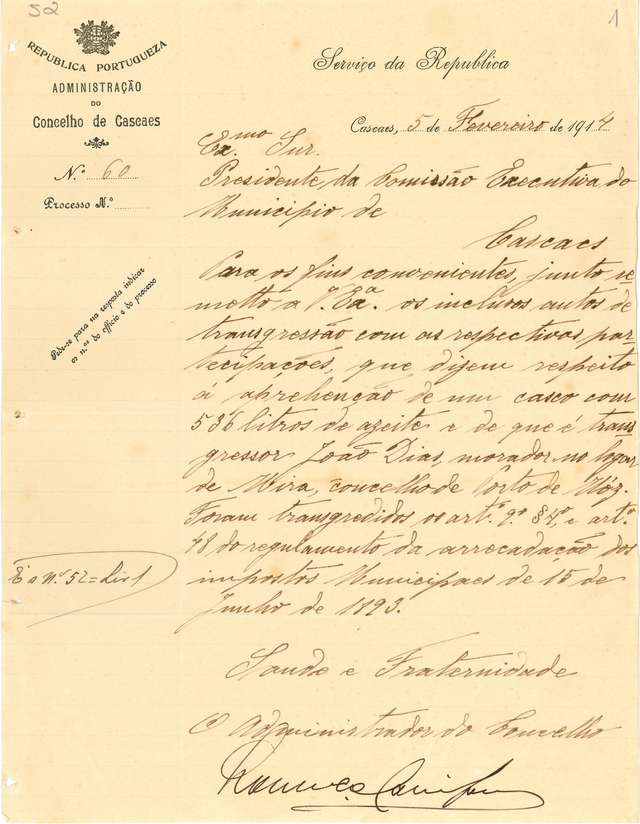 52
1
REPUBLICA PORTUGUEZA
ADMINISTRAÇÃO
DO
Concelho de Cascaes
N.º 60
Processo N.º
Pede-se para na resposta indicar
os n.os do officio e do processo
Serviço da Republica
Cascaes, 5 de Fevereiro de 1914
Exmo Snr.
Presidente da Comissão Executiva do
Municipio de
Cascaes
Para os fins convenientes, junto re-
metto a V.ª Ex.ª os inclusos autos de
transgressão com as respectivas par-
tecipações, que dizem respeito
á aprehenção de um casco com
536 litros de azeite e de que é trans
gressor João Dias, morador no logar
de Mira, concelho de Porto de Móz.
Foram transgredidos os artº. 9.º § 4º, e artº.
48 do regulamento da arrecadação dos
impostos Municipaes de 15 de
Junho de 1893.
E a nº 52 = Liv 1
Saude e Fraternidade
O Administrador do Concelho